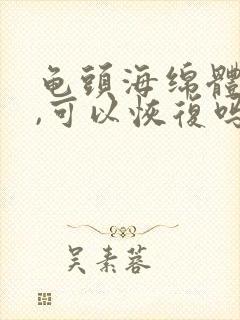 龟頭海绵體
,可以恢復吗
吴素蓉